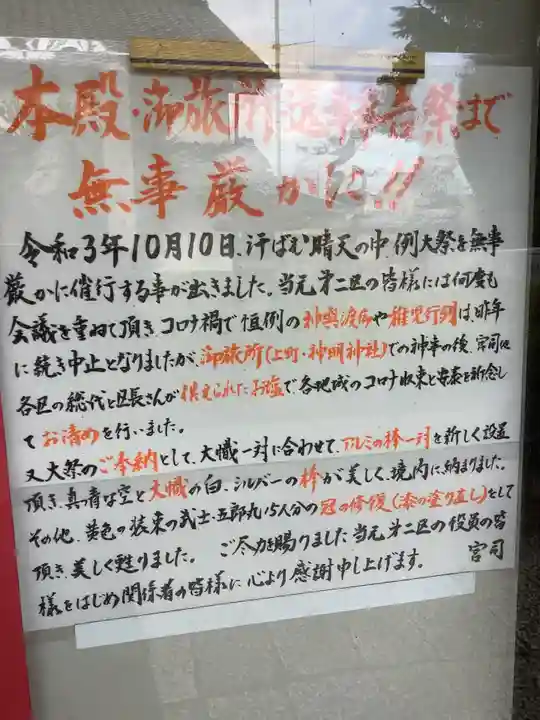 本殿・御旅所 奉告祭まで
無事厳かに!!
令和3年10月10日、汗ばむ晴天の中、例大祭を無事
厳かに催行する事が出きました。当元第二区の皆様には何度も
会議を重ねて頂き、コロナ禍で恒例の神輿渡御や稚児行列は、昨年
に続き中止となりましたが、御旅所(上町・神明神社)での神事の後、宮司と
各区の総代と区長さんが供えられたお塩で各地域のコロナ収束と安泰を祈念し
てお清めを行いました。
又大祭のご奉納として、大幟一対に合わせて、アルミの棒一対を新しく設置
頂き、真っ青な空と大幟の白、シルバーの棒が美しく、境内に納まりました。
その他、黄色の装束の武士・五郎丸15人分の冠の修復(漆の塗り直し)をして
頂き、美しく甦りました。 ご尽力を賜りました当元第二区の役員の皆
様をはじめ関係者の皆様に心より感謝申し上げます。 宮司